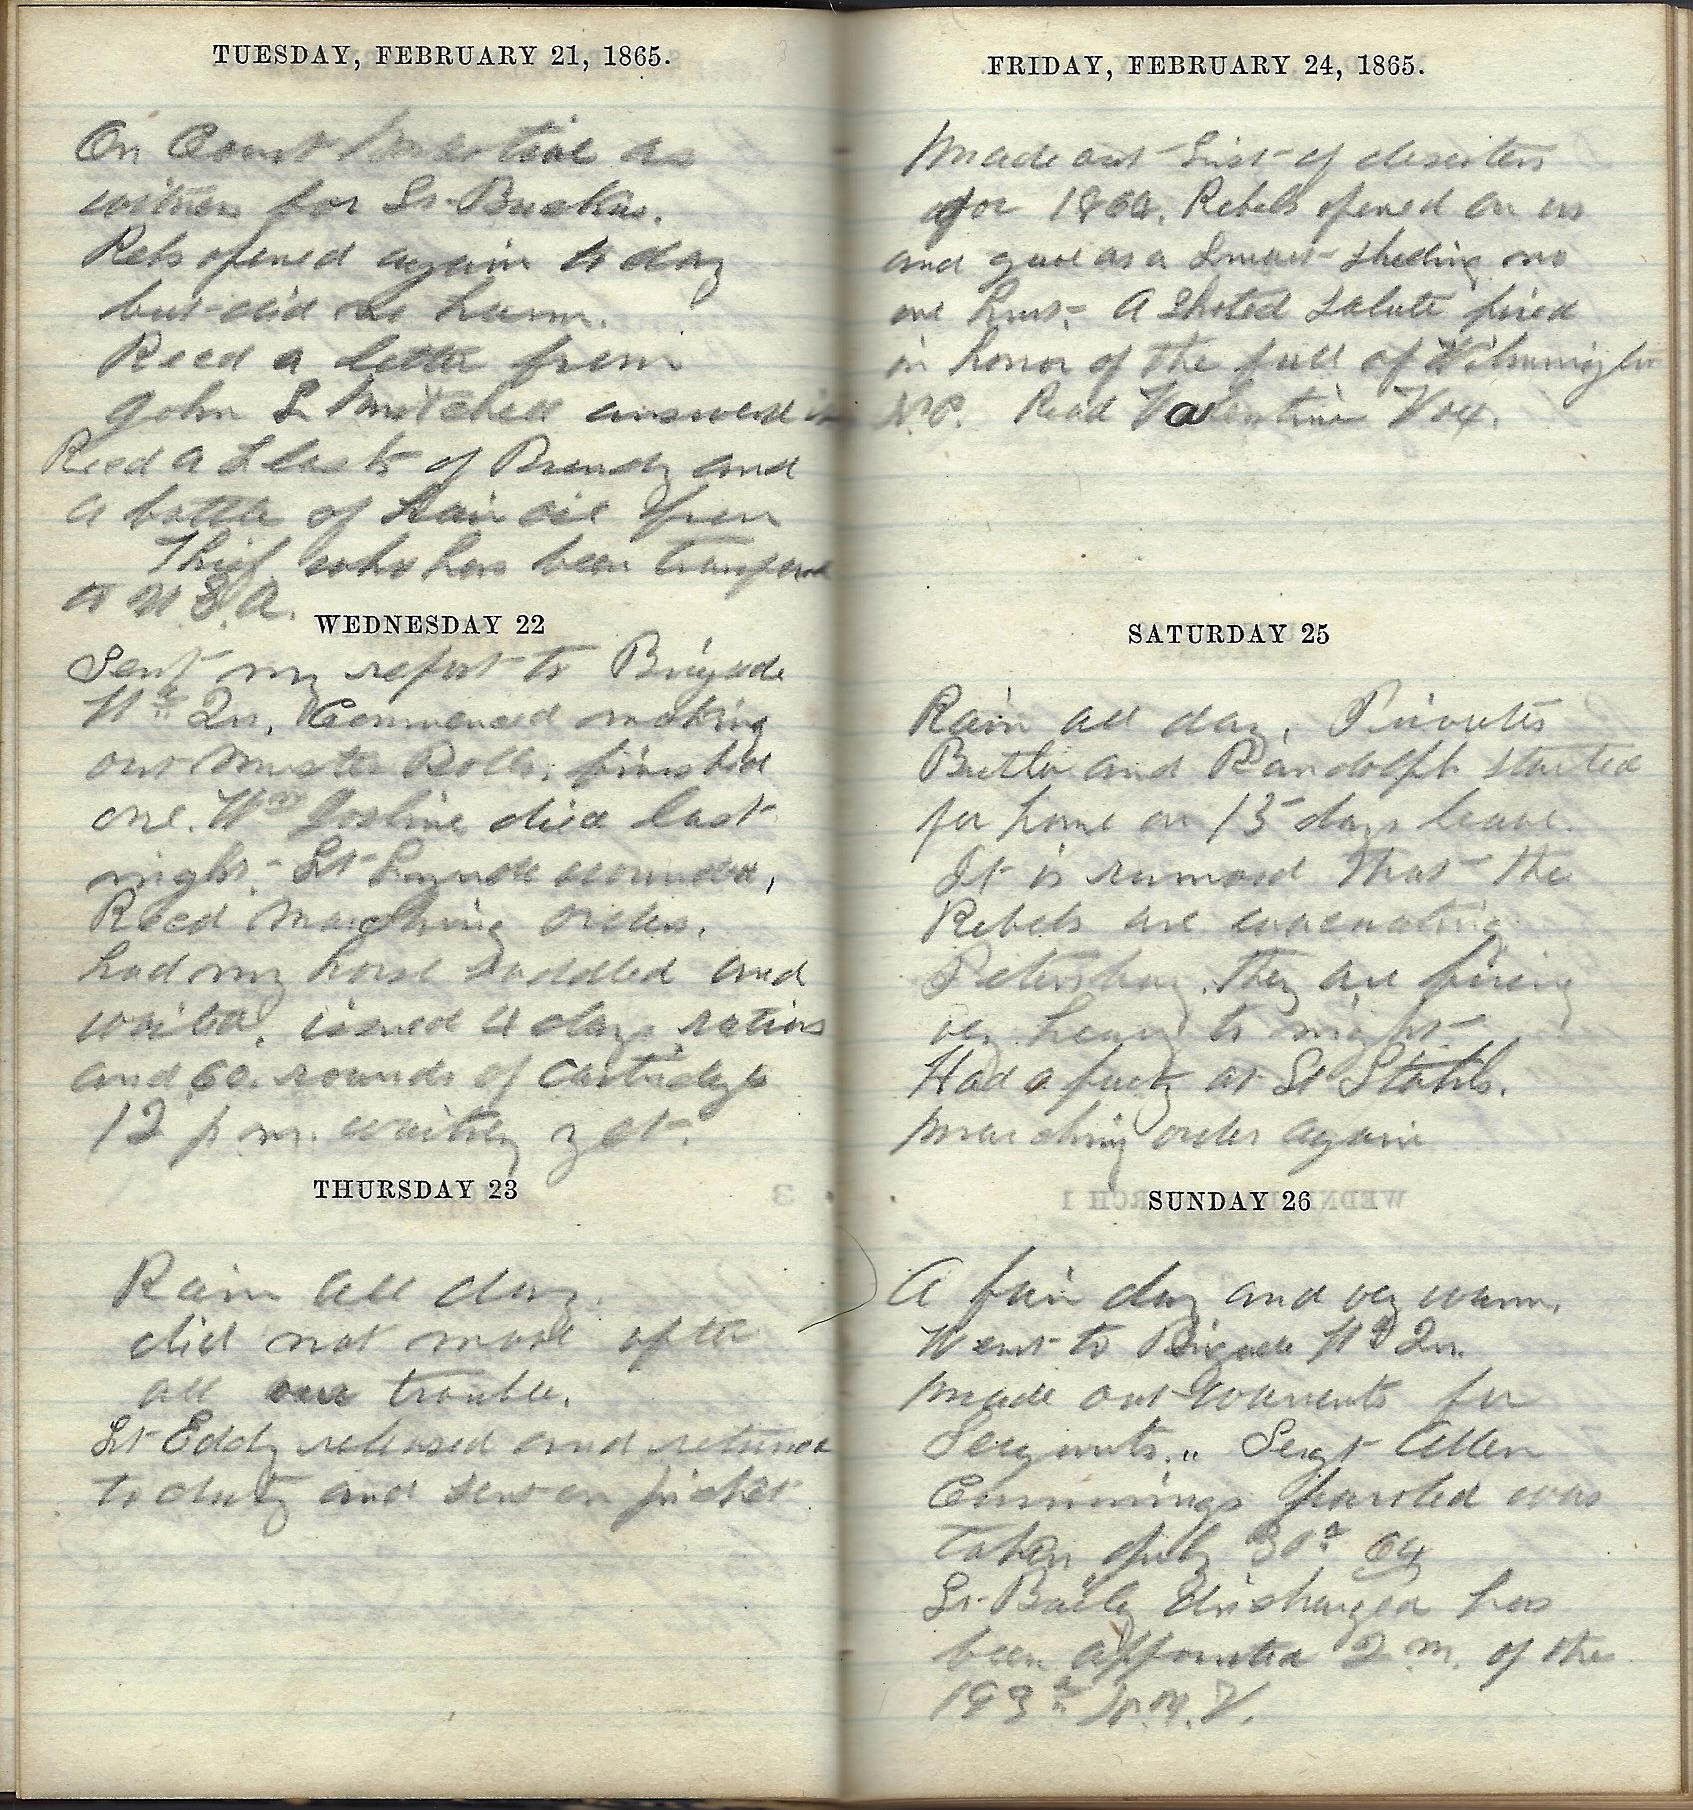 TUESDAY, FEBRUARY 21, 1865.
On Court Martial as
witness for Lt
Rebs opened again to day
but did no harm.
Recd a letter from
John L Mitchell answered it
Recd a Flask of Brandy and
a bottle of Hair oil from
Thief who has been transfered
to U.S.A.
WEDNESDAY 22
Sent my report to Brigade
Hd Qrs. Commenced making
out Muster Rolls. finished
one. Wm Josline died last
night. Lt wounded,
Recd Marching orders.
had my horse saddled and
waited. issued 4 days rations
and 60 rounds of Cartridge
12 p m. waiting yet.
THURSDAY 23
Rain all day.
did not move after
all our trouble.
Lt Eddy released and returned
to duty and sent on picket
FRIDAY, FEBRUARY 24, 1865.
Made out List of deserters
for 1864. Rebels opened on us
and gave us a Smart Sheling no
one hurt. A Shoted Salute fired
in honor of the fall of Wilmington
N.C. Read Valentine Vox.
SATURDAY 25
Rain all day. Privates
Butler and Randolph started
for home on 15 days leave.
It is rumored that the
Rebels are evacuating
Petersburg. They are firing
very heavy to night.
Had a party at Lt Stahls.
Marching order again
WEDNESDAY, MARCH 1
SUNDAY 26
A fair day and very warm.
Went to Brigade Hd Qrs.
Made out Warrents for
Sergants. " Sergt Allen
Cummings parolled was
taken July 30th 64
Lt Baily discharged has
been appointed Q. M. of the
193d N.Y.V.